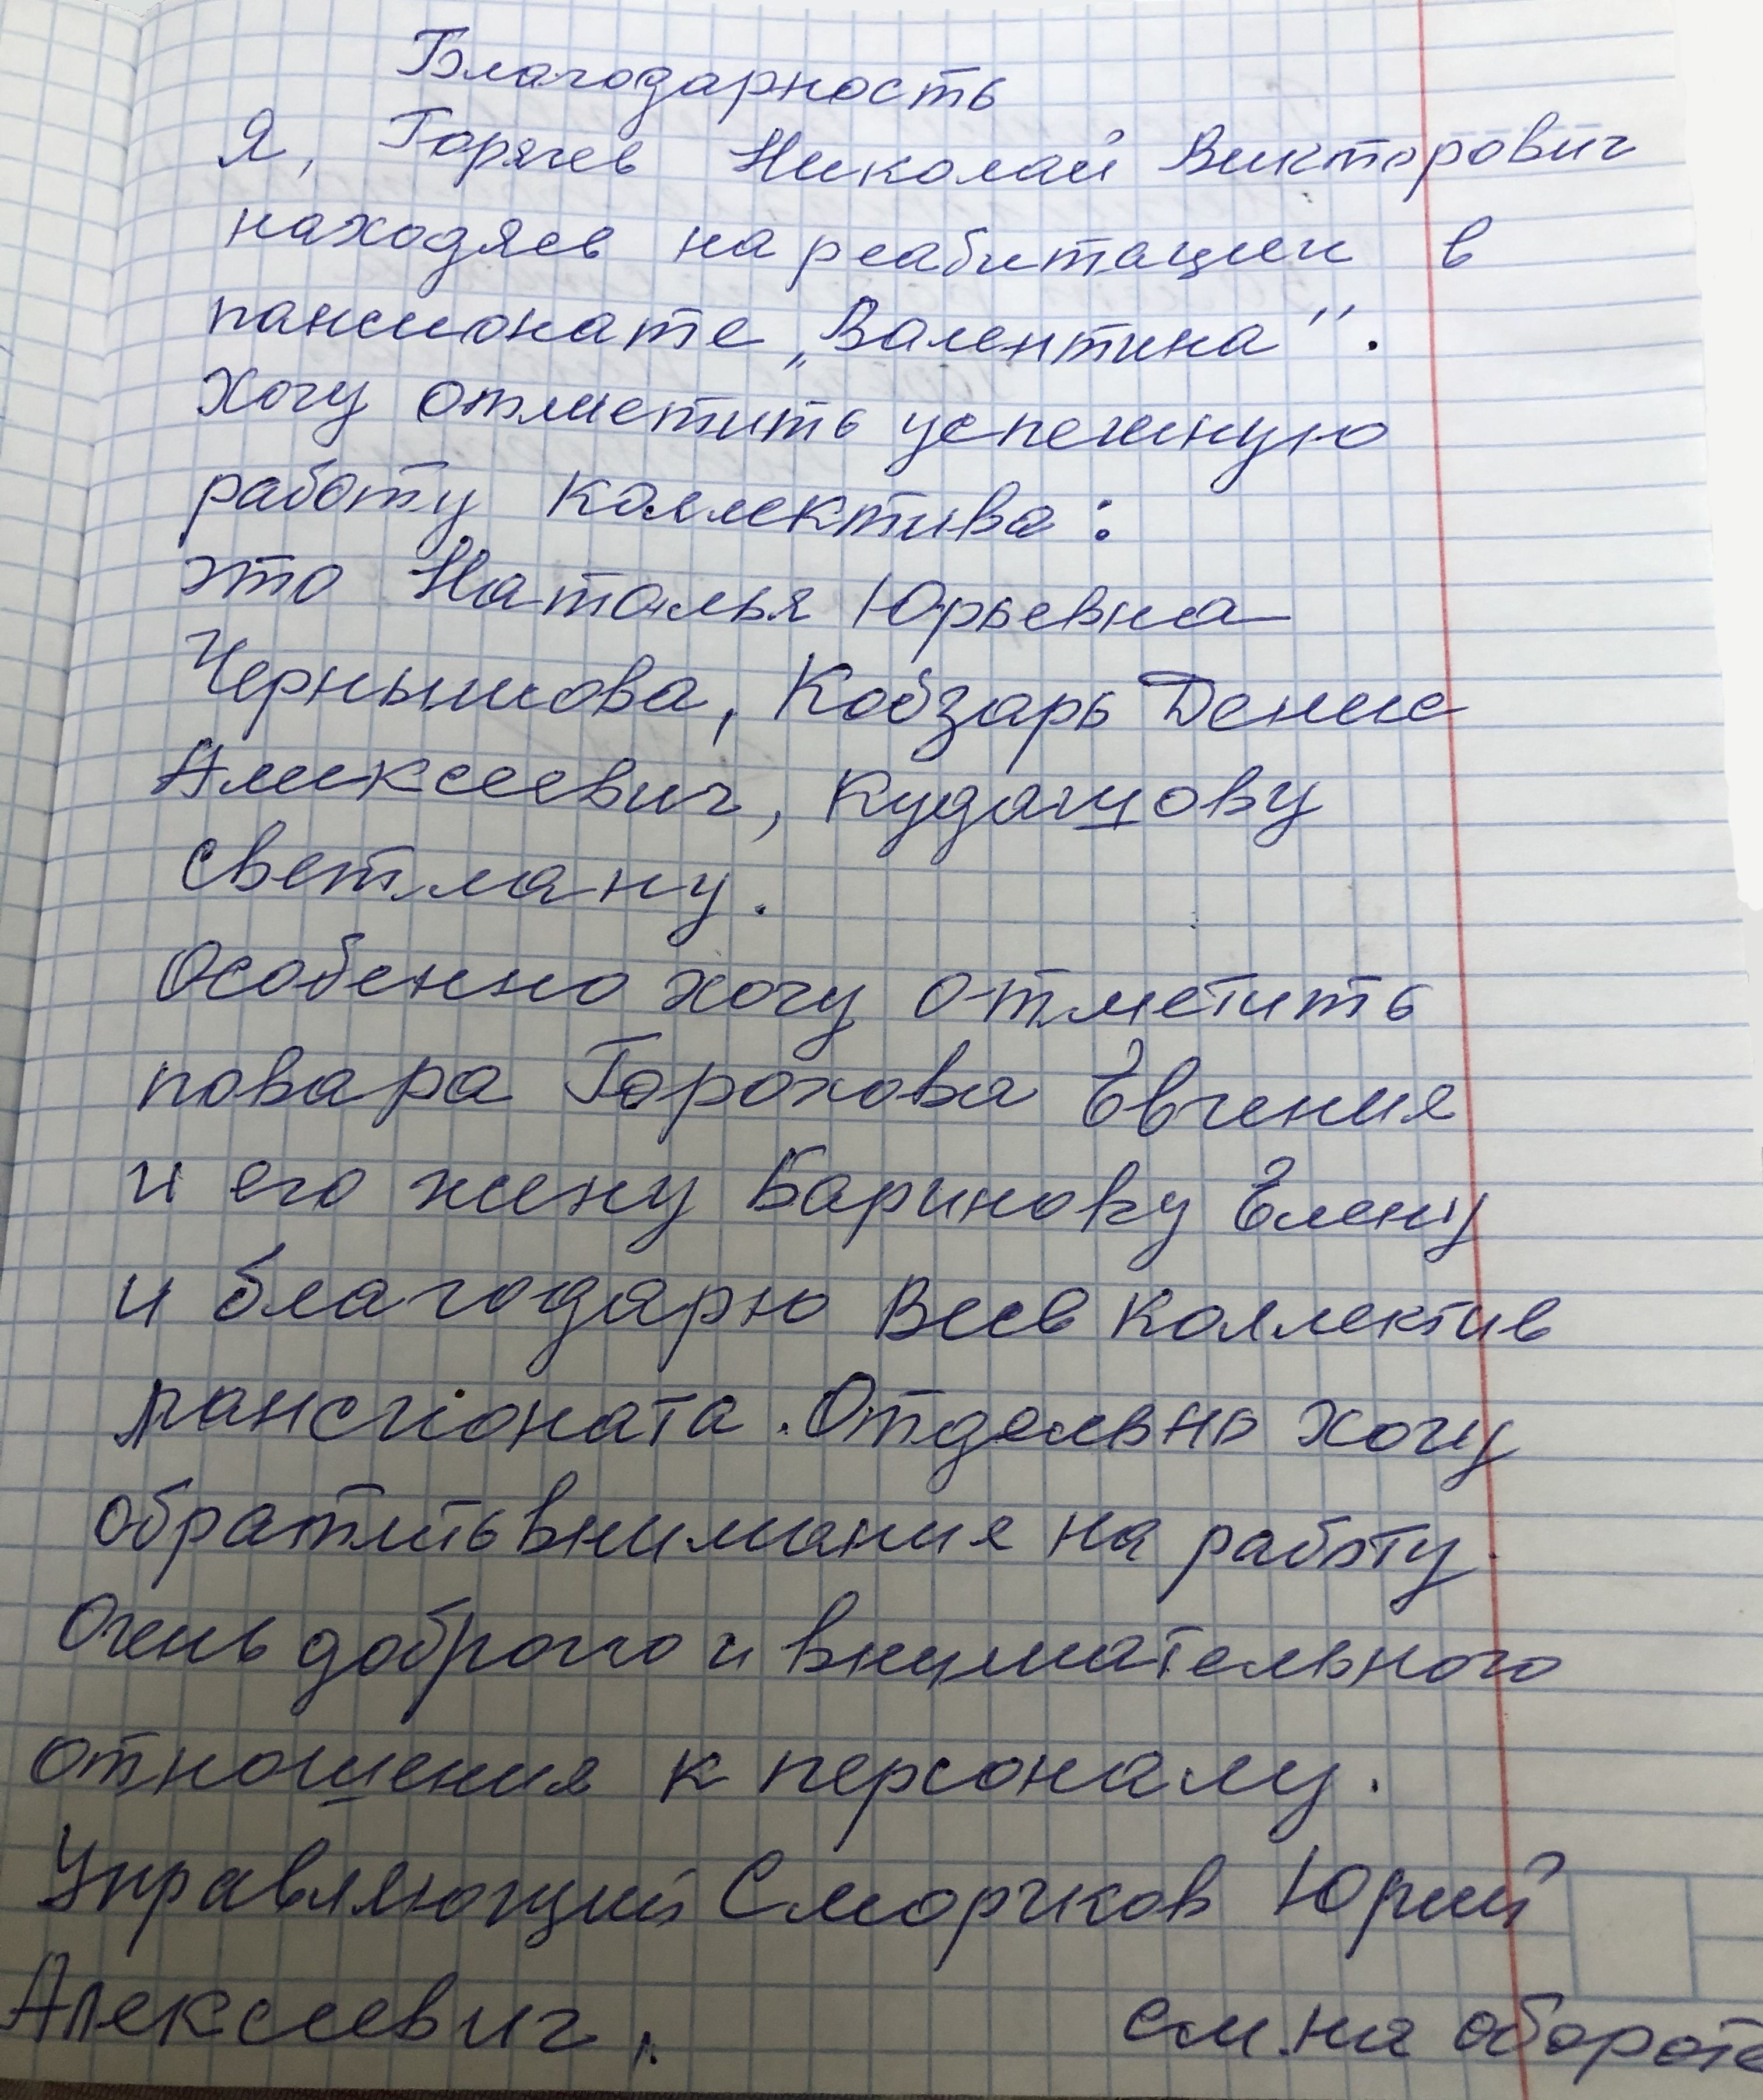 Благодарность
Я, Горячев Николай Викторович
находясь на реабитации в
пансионате „Валентина".
Хочу отметить успешную
работу коллектива:
это Наталья Юрьевна
Чернышова, Кобзарь Денис
Алексеевич, Кудашову
Светлану.
Особенно хочу отметить
повара Горохова Евгения
и его жену Баринову Елену
и благодарю весь коллектив
пансионата. Отдельно хочу
обратить внимания на работу
Очень доброго и внимательного
отношения к персоналу.
Управляющий Сморчков Юрий
Алексеевич.
см. на обороте